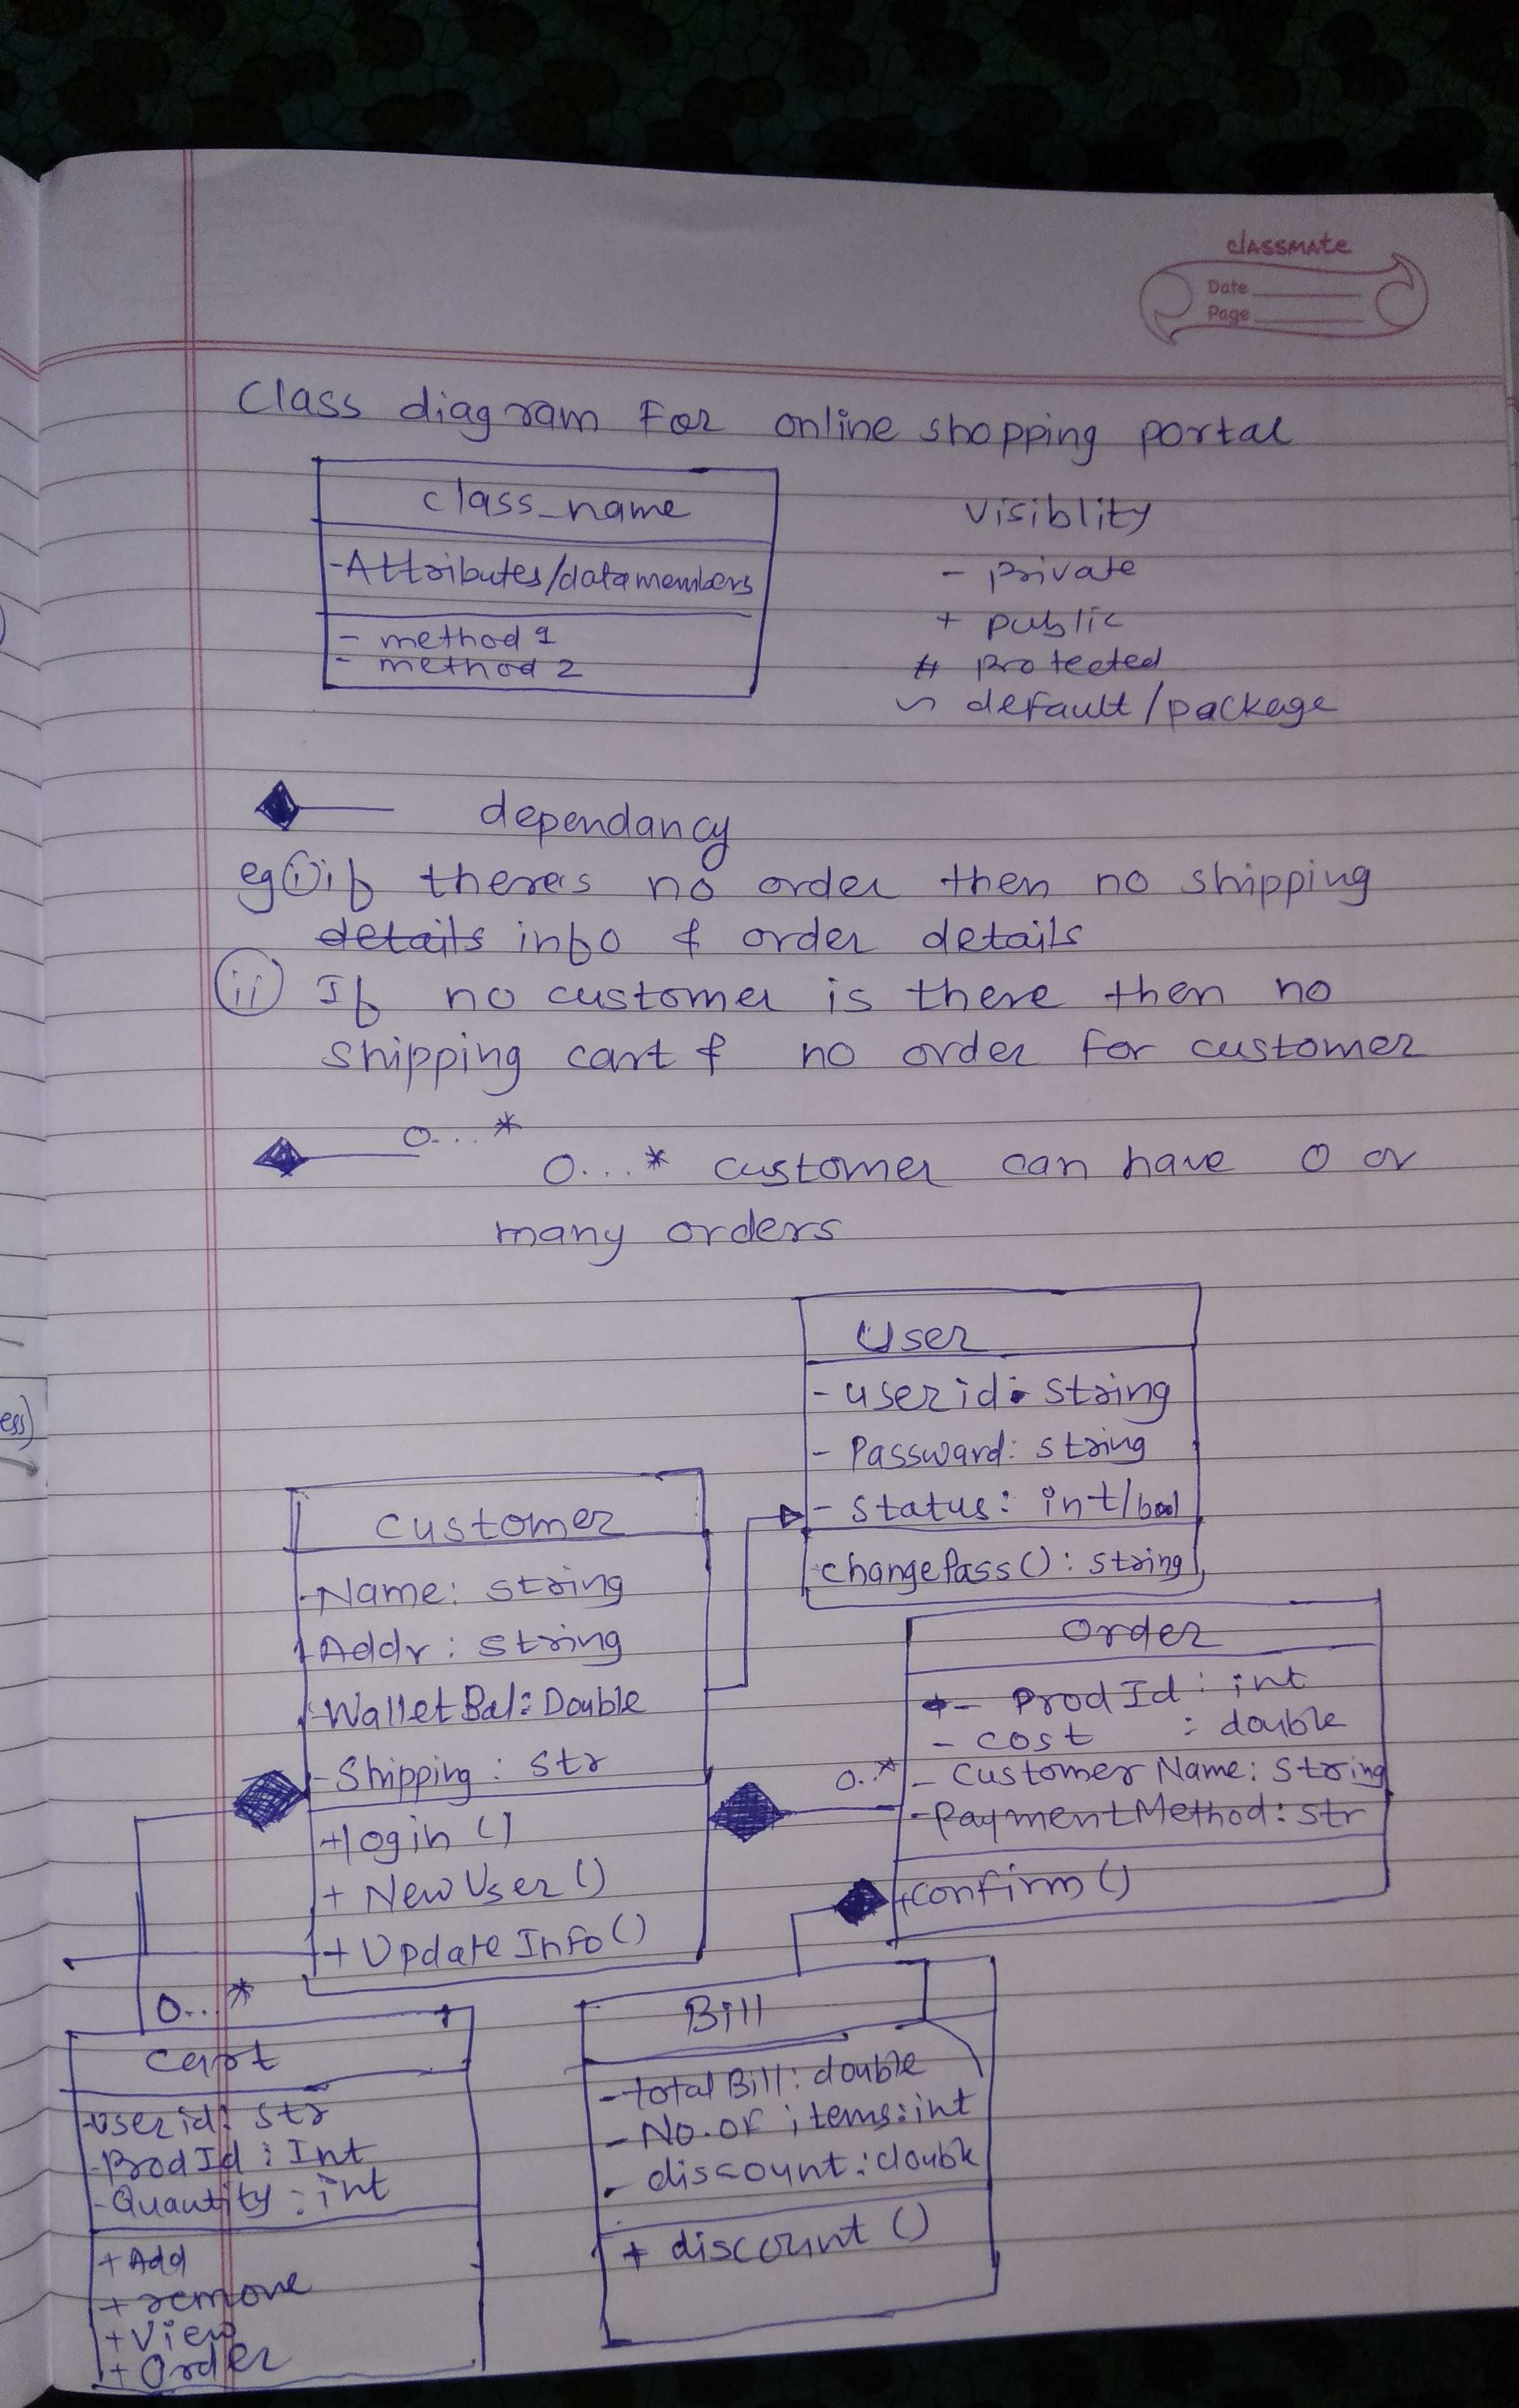 classmate
Date
Page
Class diagram For online shopping portal
class_name
-Attributes/datamembers
- method 1
- method 2
visiblity
- private
+ public
# protected
~ default/package
dependancy
eg (i) if theres no order then no shipping
details info & order details
(ii) If no customer is there then no
shipping cart & no order for customer
0...*
0...* customer can have 0 or
many orders
User
- userid: string
- Passward: string
- Status: int/bool
changePass(): string
customer
-Name: string
-Addr: string
-WalletBal: Double
- Shipping: str
+login ()
+ NewUser ()
+ UpdateInfo()
Order
- ProdId: int
- cost : double
0..*
- CustomerName: string
- PaymentMethod: str
+confirm ()
0...*
cart
-userid: str
-ProdId: Int
-Quantity: int
+ Add
+ remove
+ View
+ Order
Bill
- totalBill: double
- No.of items: int
- discount: double
+ discount ()
ess)